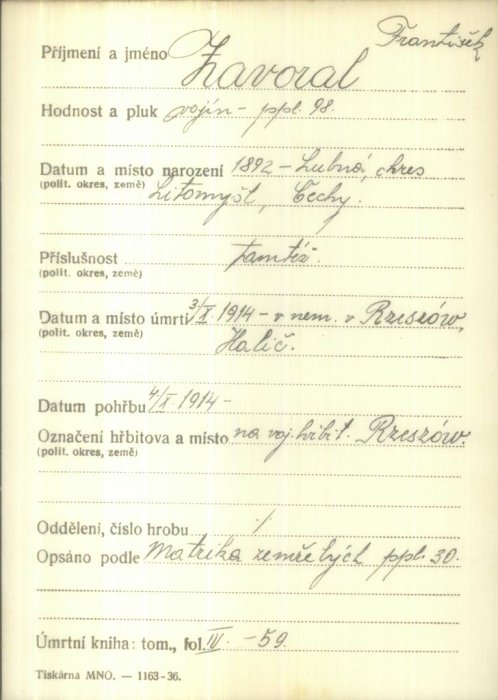 František
Příjmení a jméno Zavoral
Hodnost a pluk vojín - ppl. 98.
Datum a místo narození 1892 - Lubná, okres
(polit. okres, země) Litomyšl, Čechy.
Příslušnost tamtéž
(polit. okres, země)
Datum a místo úmrtí 3/X. 1914 - v nem. v Rzeszów,
(polit. okres, země) Halič.
Datum pohřbu 4/X. 1914 -
Označení hřbitova a místo na voj. hřbit. Rzeszów.
(polit. okres, země)
Oddělení, číslo hrobu /
Opsáno podle Matrika zemřelých ppl. 30.
Úmrtní kniha: tom., fol. IV. - 59.
Tiskárna MNO. — 1163-36.